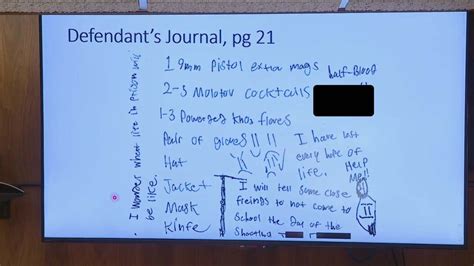 Defendant's Journal, pg 21
1 9mm pistol extra mags
half-Blood
2-3 Molotov cocktails
1-3
Pair of gloves
Hat
Jacket
Mask
Kinfe
I have lost
every hope of
life.
Help
Me!!
I will tell some close
freinds to not come to
school the day of the
I wonder what life in prison will
be like.